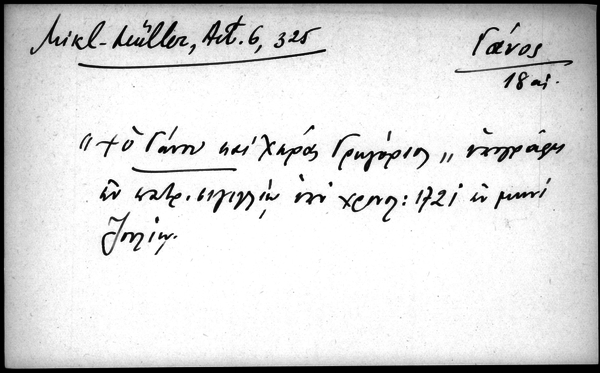 Mikl-Müller, Act. 6, 325
Γάνος
18 αἰ.
"+ ὁ Γάνου καὶ Χώρας Γρηγόριος" ὑπογράφει
ἐν πατρ. σιγιλλίῳ ὑπὸ χρονολ: 1721 ἐν μηνὶ
Ἰουλίῳ.